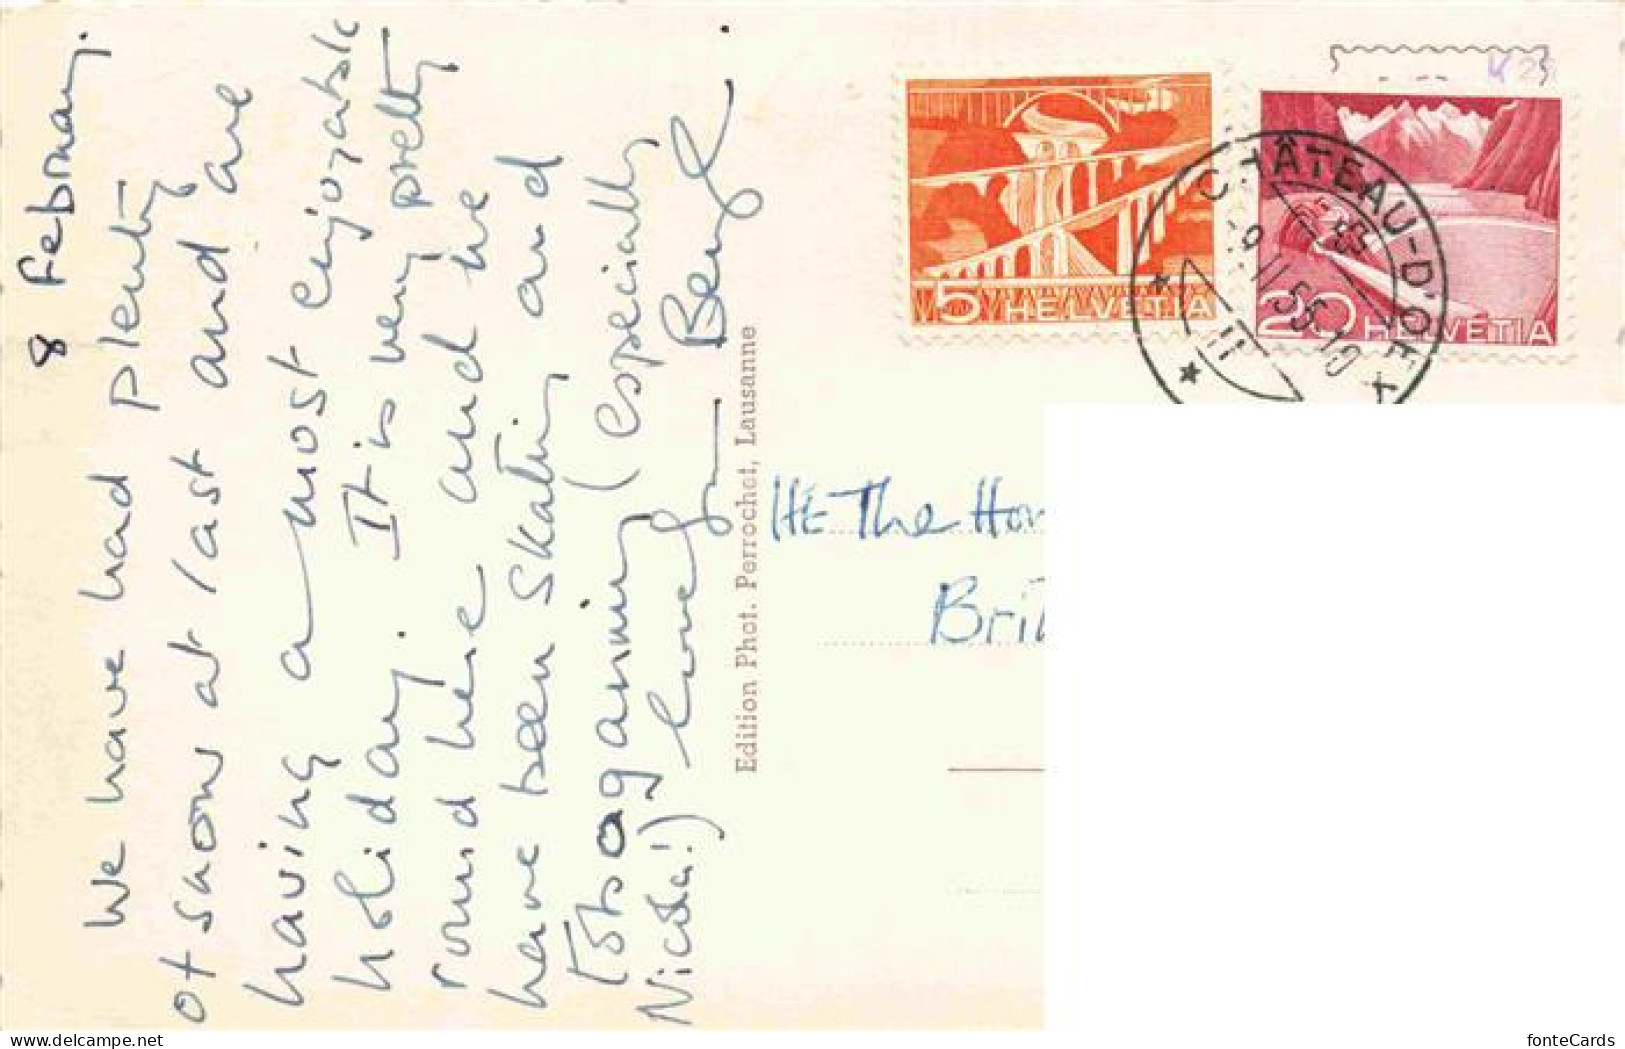 8 February.
We have had plenty
of snow at last and are
having a most enjoyable
holiday. It is very pretty
round here and we
have been skating and
toboganing (especially
Nicita!) Love from Beryl.
Edition Phot. Perrochet, Lausanne
5 HELVETIA
20 HELVETIA
CHÂTEAU-D'OEX
8.II.55-10
HE The Hon
Bri
fonteCards